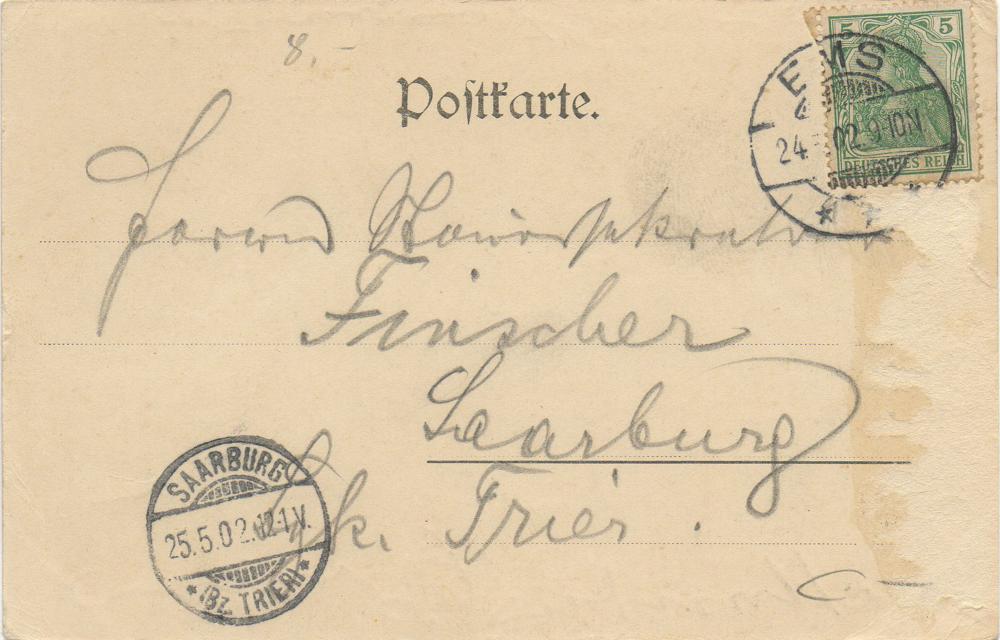 8.-
Postkarte.
5 5
DEUTSCHES REICH
EMS
24. 02. 9-10N
Herrn
Finscher
Saarburg
Bz. Trier.
SAARBURG
25.5.02.12-1V.
* (Bz. TRIER) *